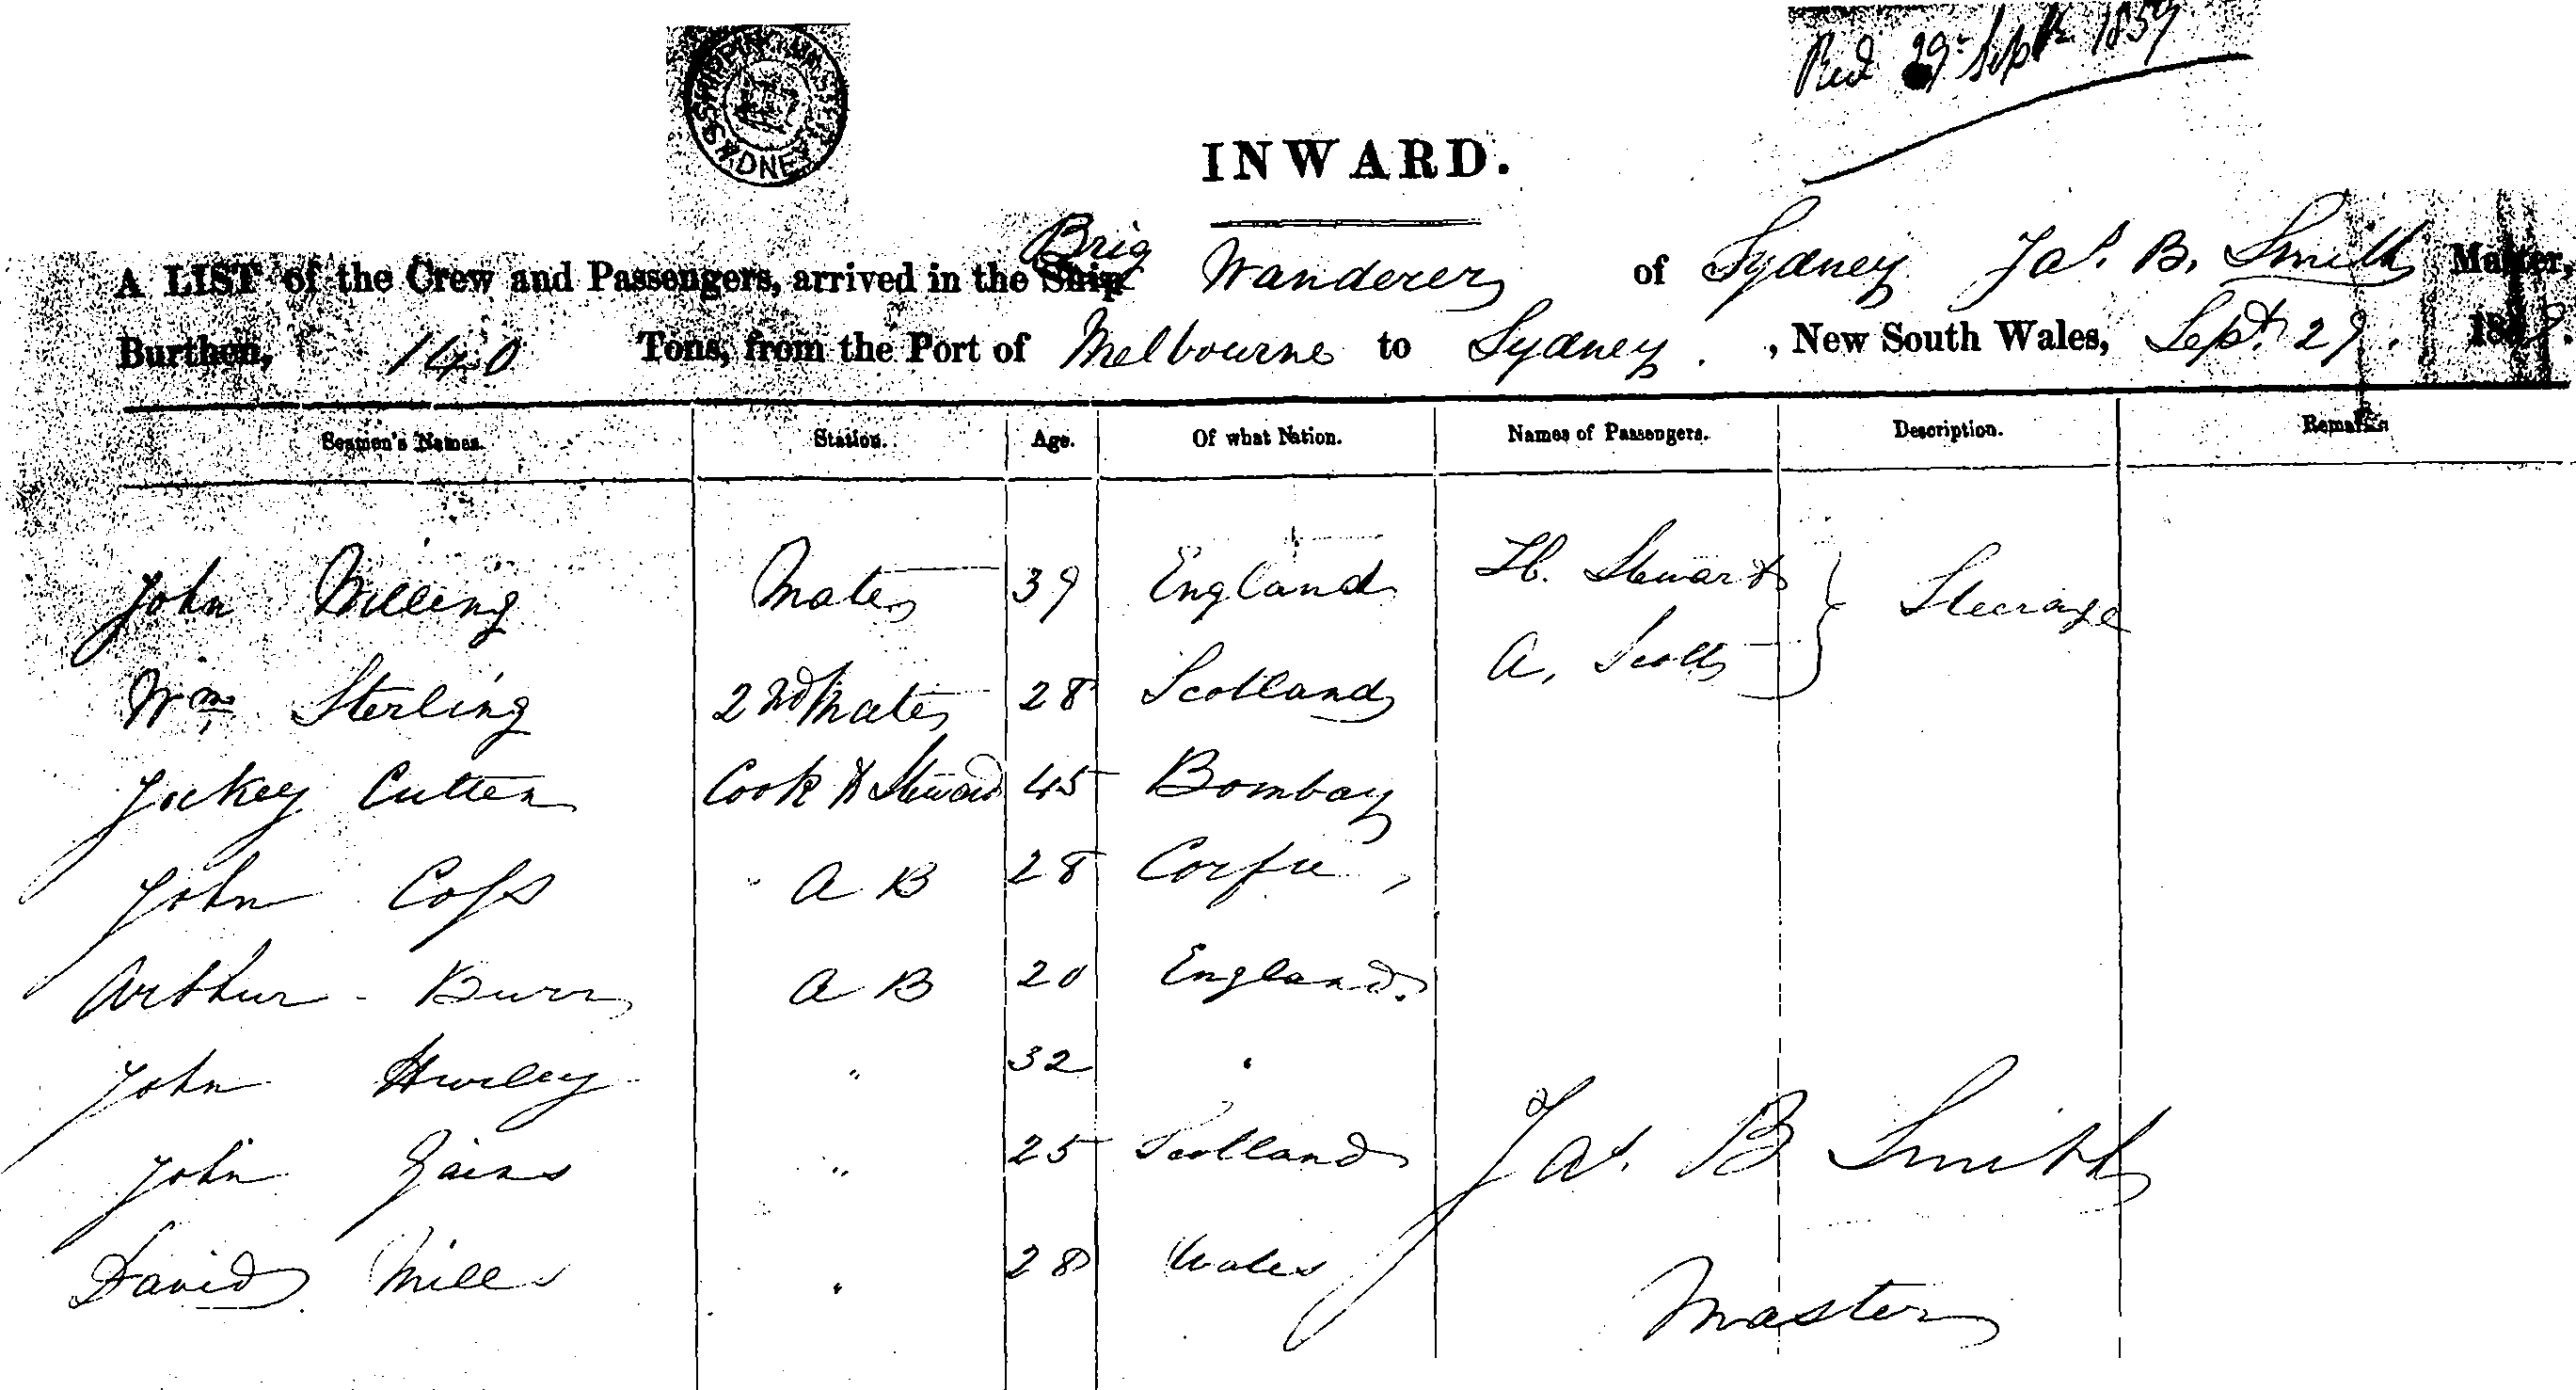 SHIPPING MASTER SYDNEY
Recd 29th Septr 1859
INWARD.
Brig
A LIST of the Crew and Passengers, arrived in the Ship Wanderer of Sydney Jas. B. Smith Master,
Burthen, 140 Tons, from the Port of Melbourne to Sydney , New South Wales, Sept. 29. 185
Seamen's Names. Station. Age. Of what Nation. Names of Passengers. Description. Remarks
John Billing Mate 39 England H. Stewart Steerage
A. Scott
Wm Sterling 2nd Mate 28 Scotland
Jockey Cutten Cook & Steward 45 Bombay
John A B 28 Corfu
Arthur Burn A B 20 England.
John Hurley " 32 "
John " 25 Scotland
David Mills " 28 Wales
Jas. B Smith
Master